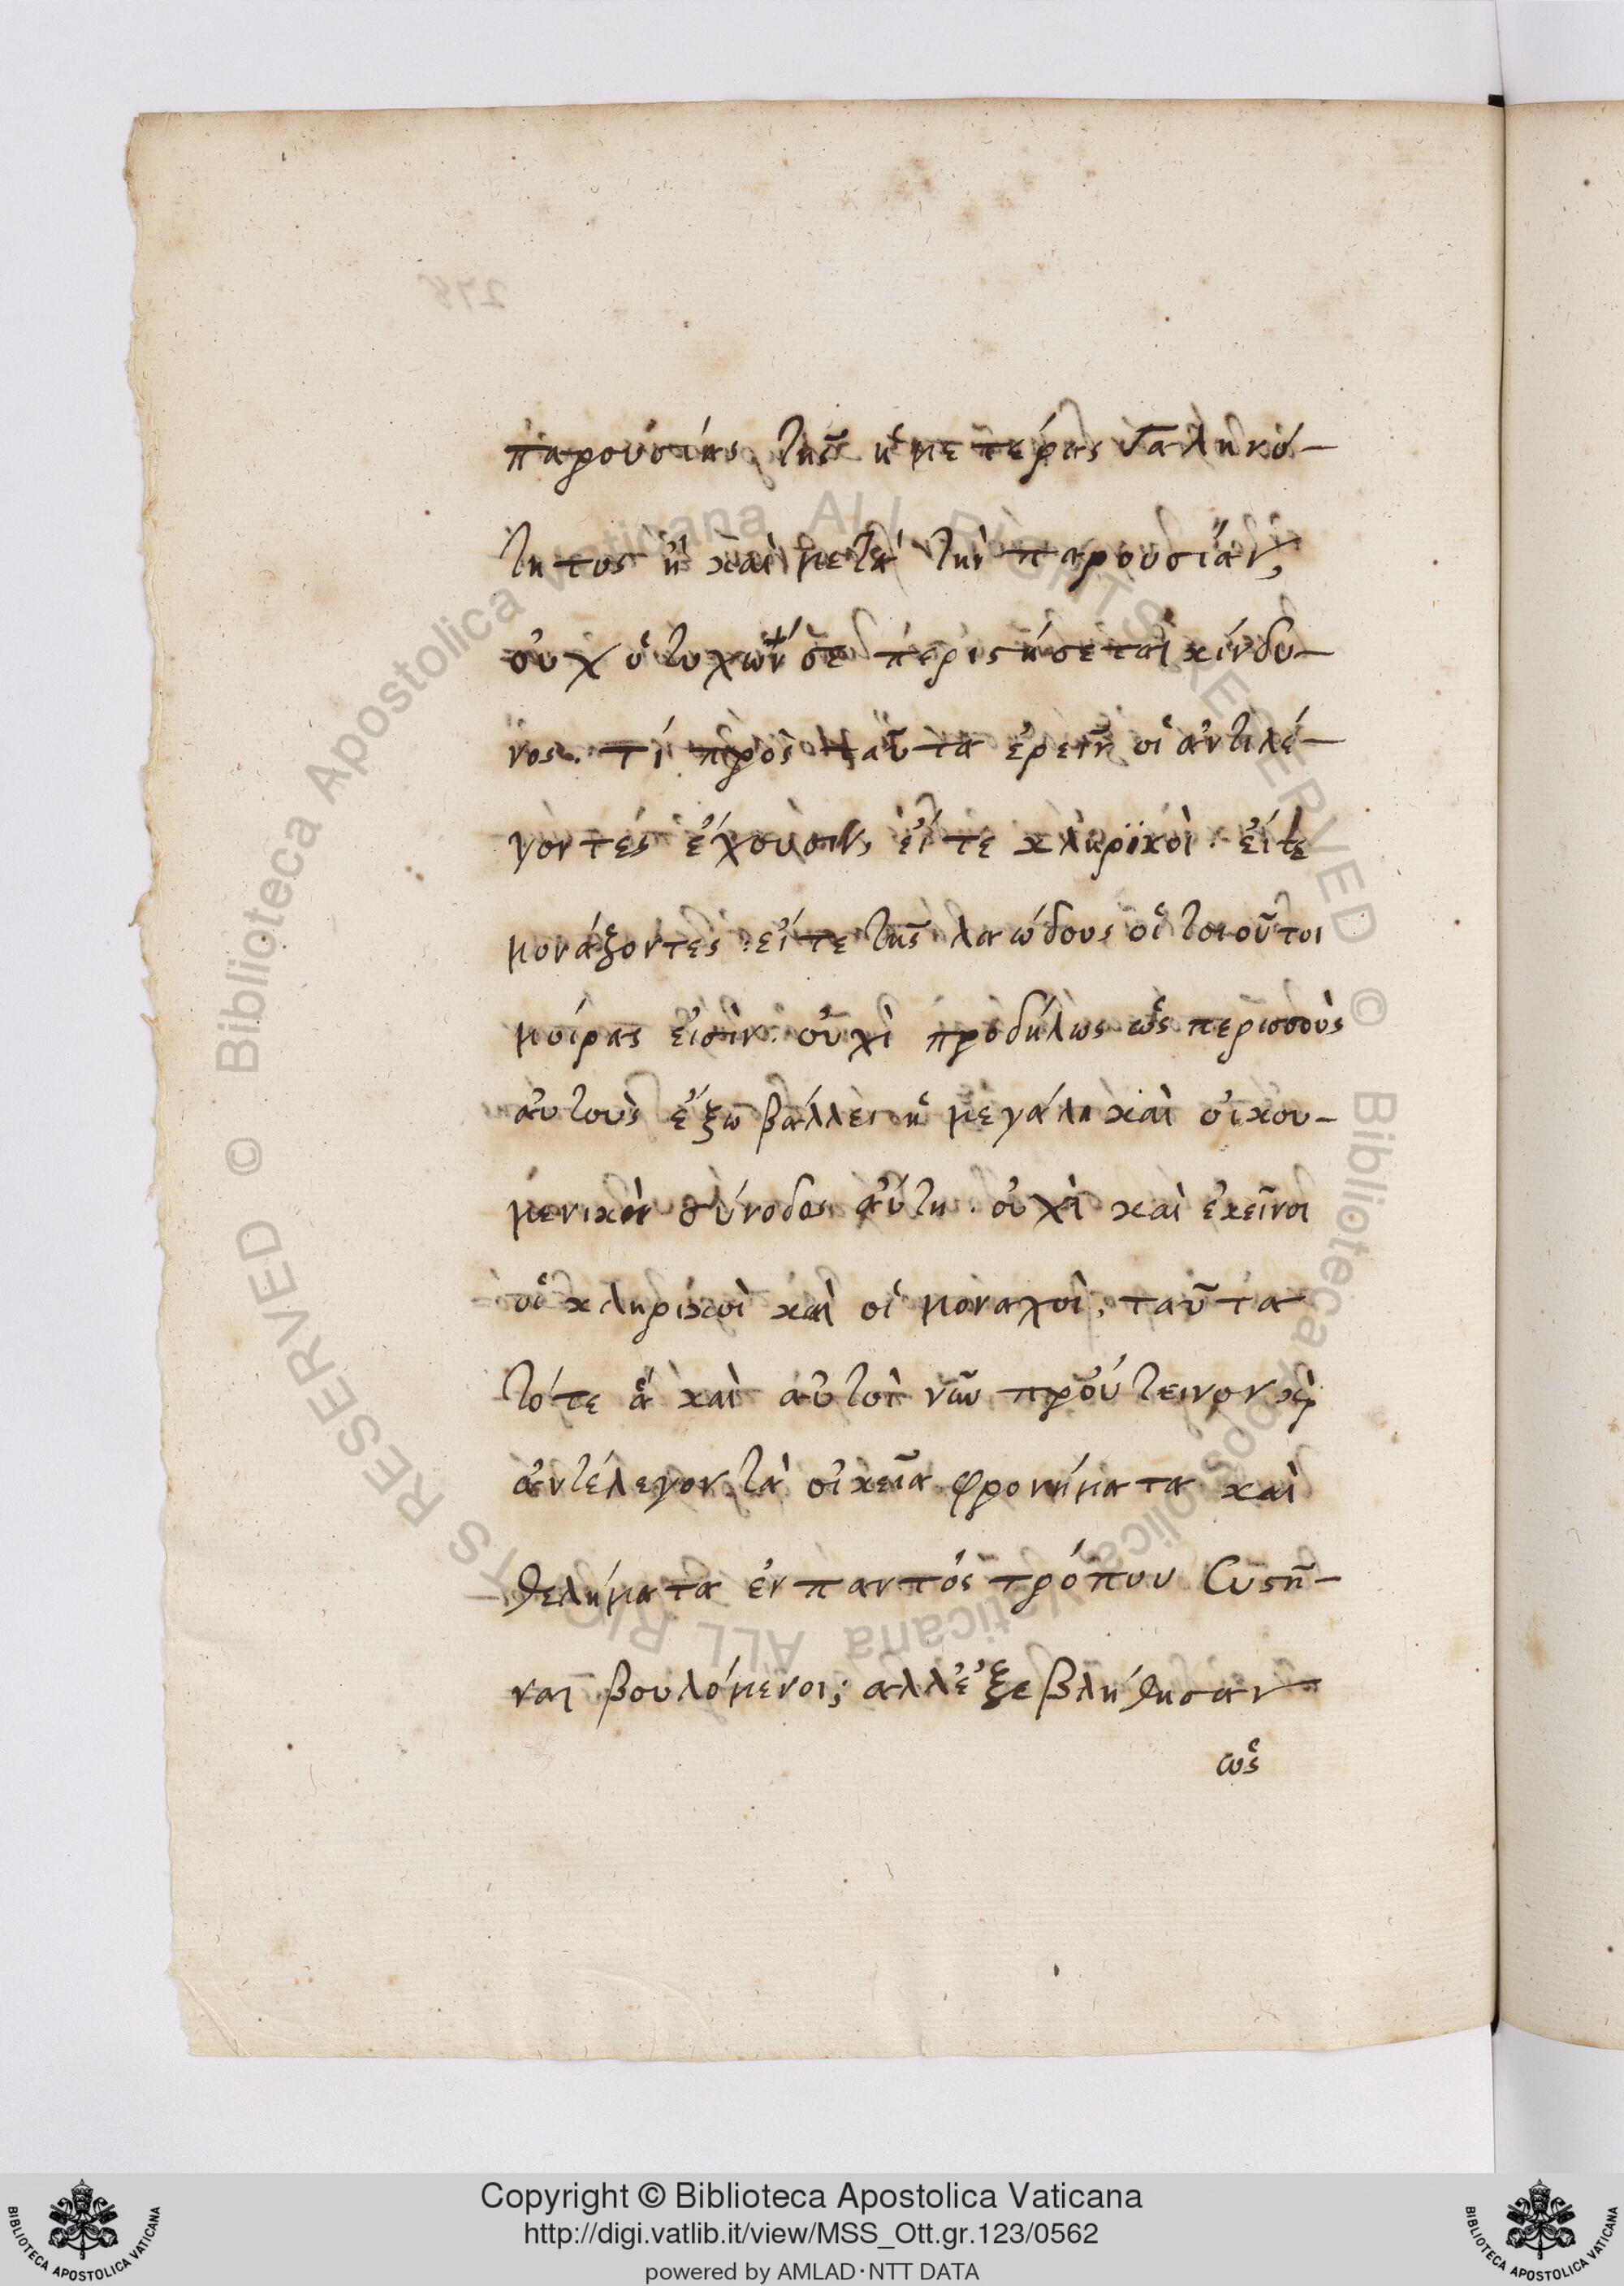 παρουσίας τῆς ἡμετέρας γαληνό-
τητος ἢ καὶ μετὰ τὴν παρουσίαν,
οὐχ ὁ τυχών σε περιστήσεται κίνδυ-
νος. τί πρὸς ταῦτα ἐρεῖν οἱ ἀντιλέ-
γοντες ἔχουσιν, εἴτε κληρϊκοὶ εἴτε
μονάζοντες εἴτε τῆς λαώδους οἱ τοιοῦτοι
μοίρας εἰσὶν. οὐχὶ προδήλως ὡς περισσοὺς
αὐτοὺς ἔξω βάλλει ἡ μεγάλη καὶ οἰκου-
μενικὴ σύνοδος αὕτη. οὐχὶ καὶ ἐκεῖνοι
οἱ κληρικοὶ καὶ οἱ μοναχοὶ, ταῦτα
τότε ἃ καὶ αὐτοὶ νῦν προὔτεινον καὶ
ἀντέλεγον τὰ οἰκεῖα φρονήματα καὶ
θελήματα ἐκ παντός τρόπου συστῆ-
ναι βουλόμενοι; αλλ' ἐξεβλήθησαν
ὡς
Copyright © Biblioteca Apostolica Vaticana
http://digi.vatlib.it/view/MSS_Ott.gr.123/0562
powered by AMLAD·NTT DATA
BIBLIOTECA APOSTOLICA VATICANA
BIBLIOTECA APOSTOLICA VATICANA
© Biblioteca Apostolica Vaticana ALL RIGHTS RESERVED © Biblioteca Apostolica Vaticana ALL RIGHTS RESERVED